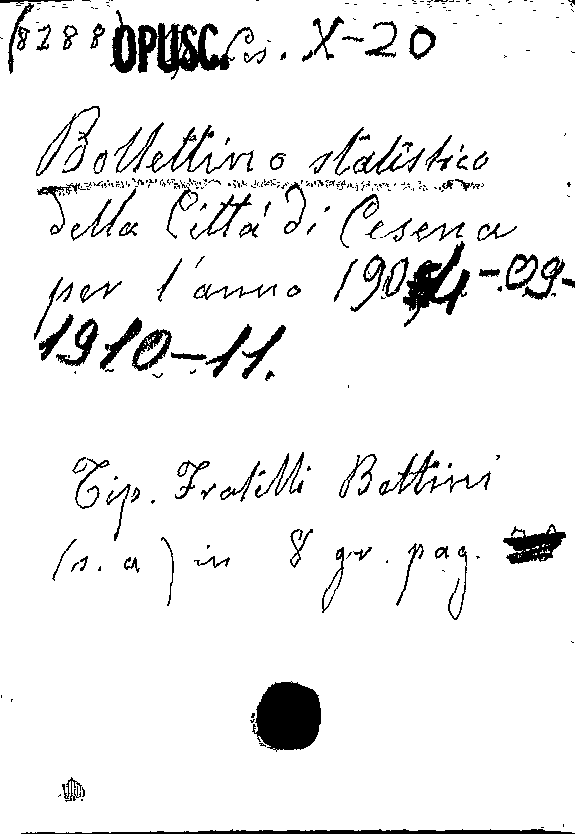 (8288) OPUSC. Ces. X-20
Bollettino statistico
della Città di Cesena
per l'anno 1904-09-
1910-11.
Tip. Fratelli Bettini
(s. a) in 8 gr. pag.